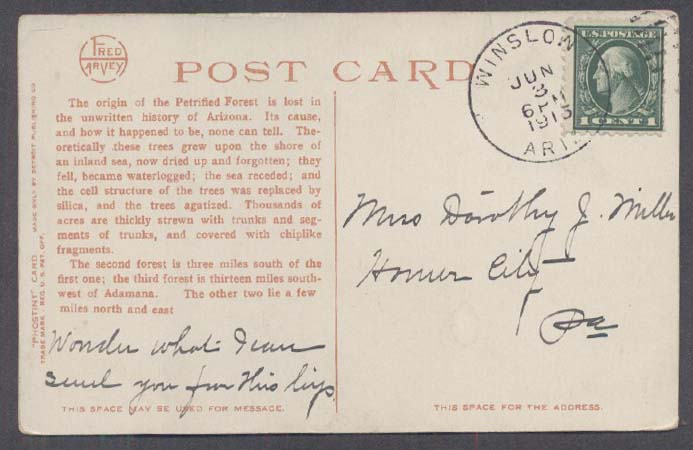 FRED
HARVEY
POST CARD
WINSLOW
JUN
3
6 PM
1913
ARIZ.
U.S. POSTAGE
1 CENT 1
The origin of the Petrified Forest is lost in
the unwritten history of Arizona. Its cause,
and how it happened to be, none can tell. The-
oretically these trees grew upon the shore of
an inland sea, now dried up and forgotten; they
fell, became waterlogged; the sea receded; and
the cell structure of the trees was replaced by
silica, and the trees agatized. Thousands of
acres are thickly strewn with trunks and seg-
ments of trunks, and covered with chiplike
fragments.
The second forest is three miles south of the
first one; the third forest is thirteen miles south-
west of Adamana. The other two lie a few
miles north and east
"PHOSTINT" CARD. MADE ONLY BY DETROIT PUBLISHING CO.
TRADE MARK. REG. U.S. PAT. OFF.
Wonder what I can
send you for this
THIS SPACE MAY BE USED FOR MESSAGE.
Miss Dorothy J. Miller
Homer City
Pa
THIS SPACE FOR THE ADDRESS.